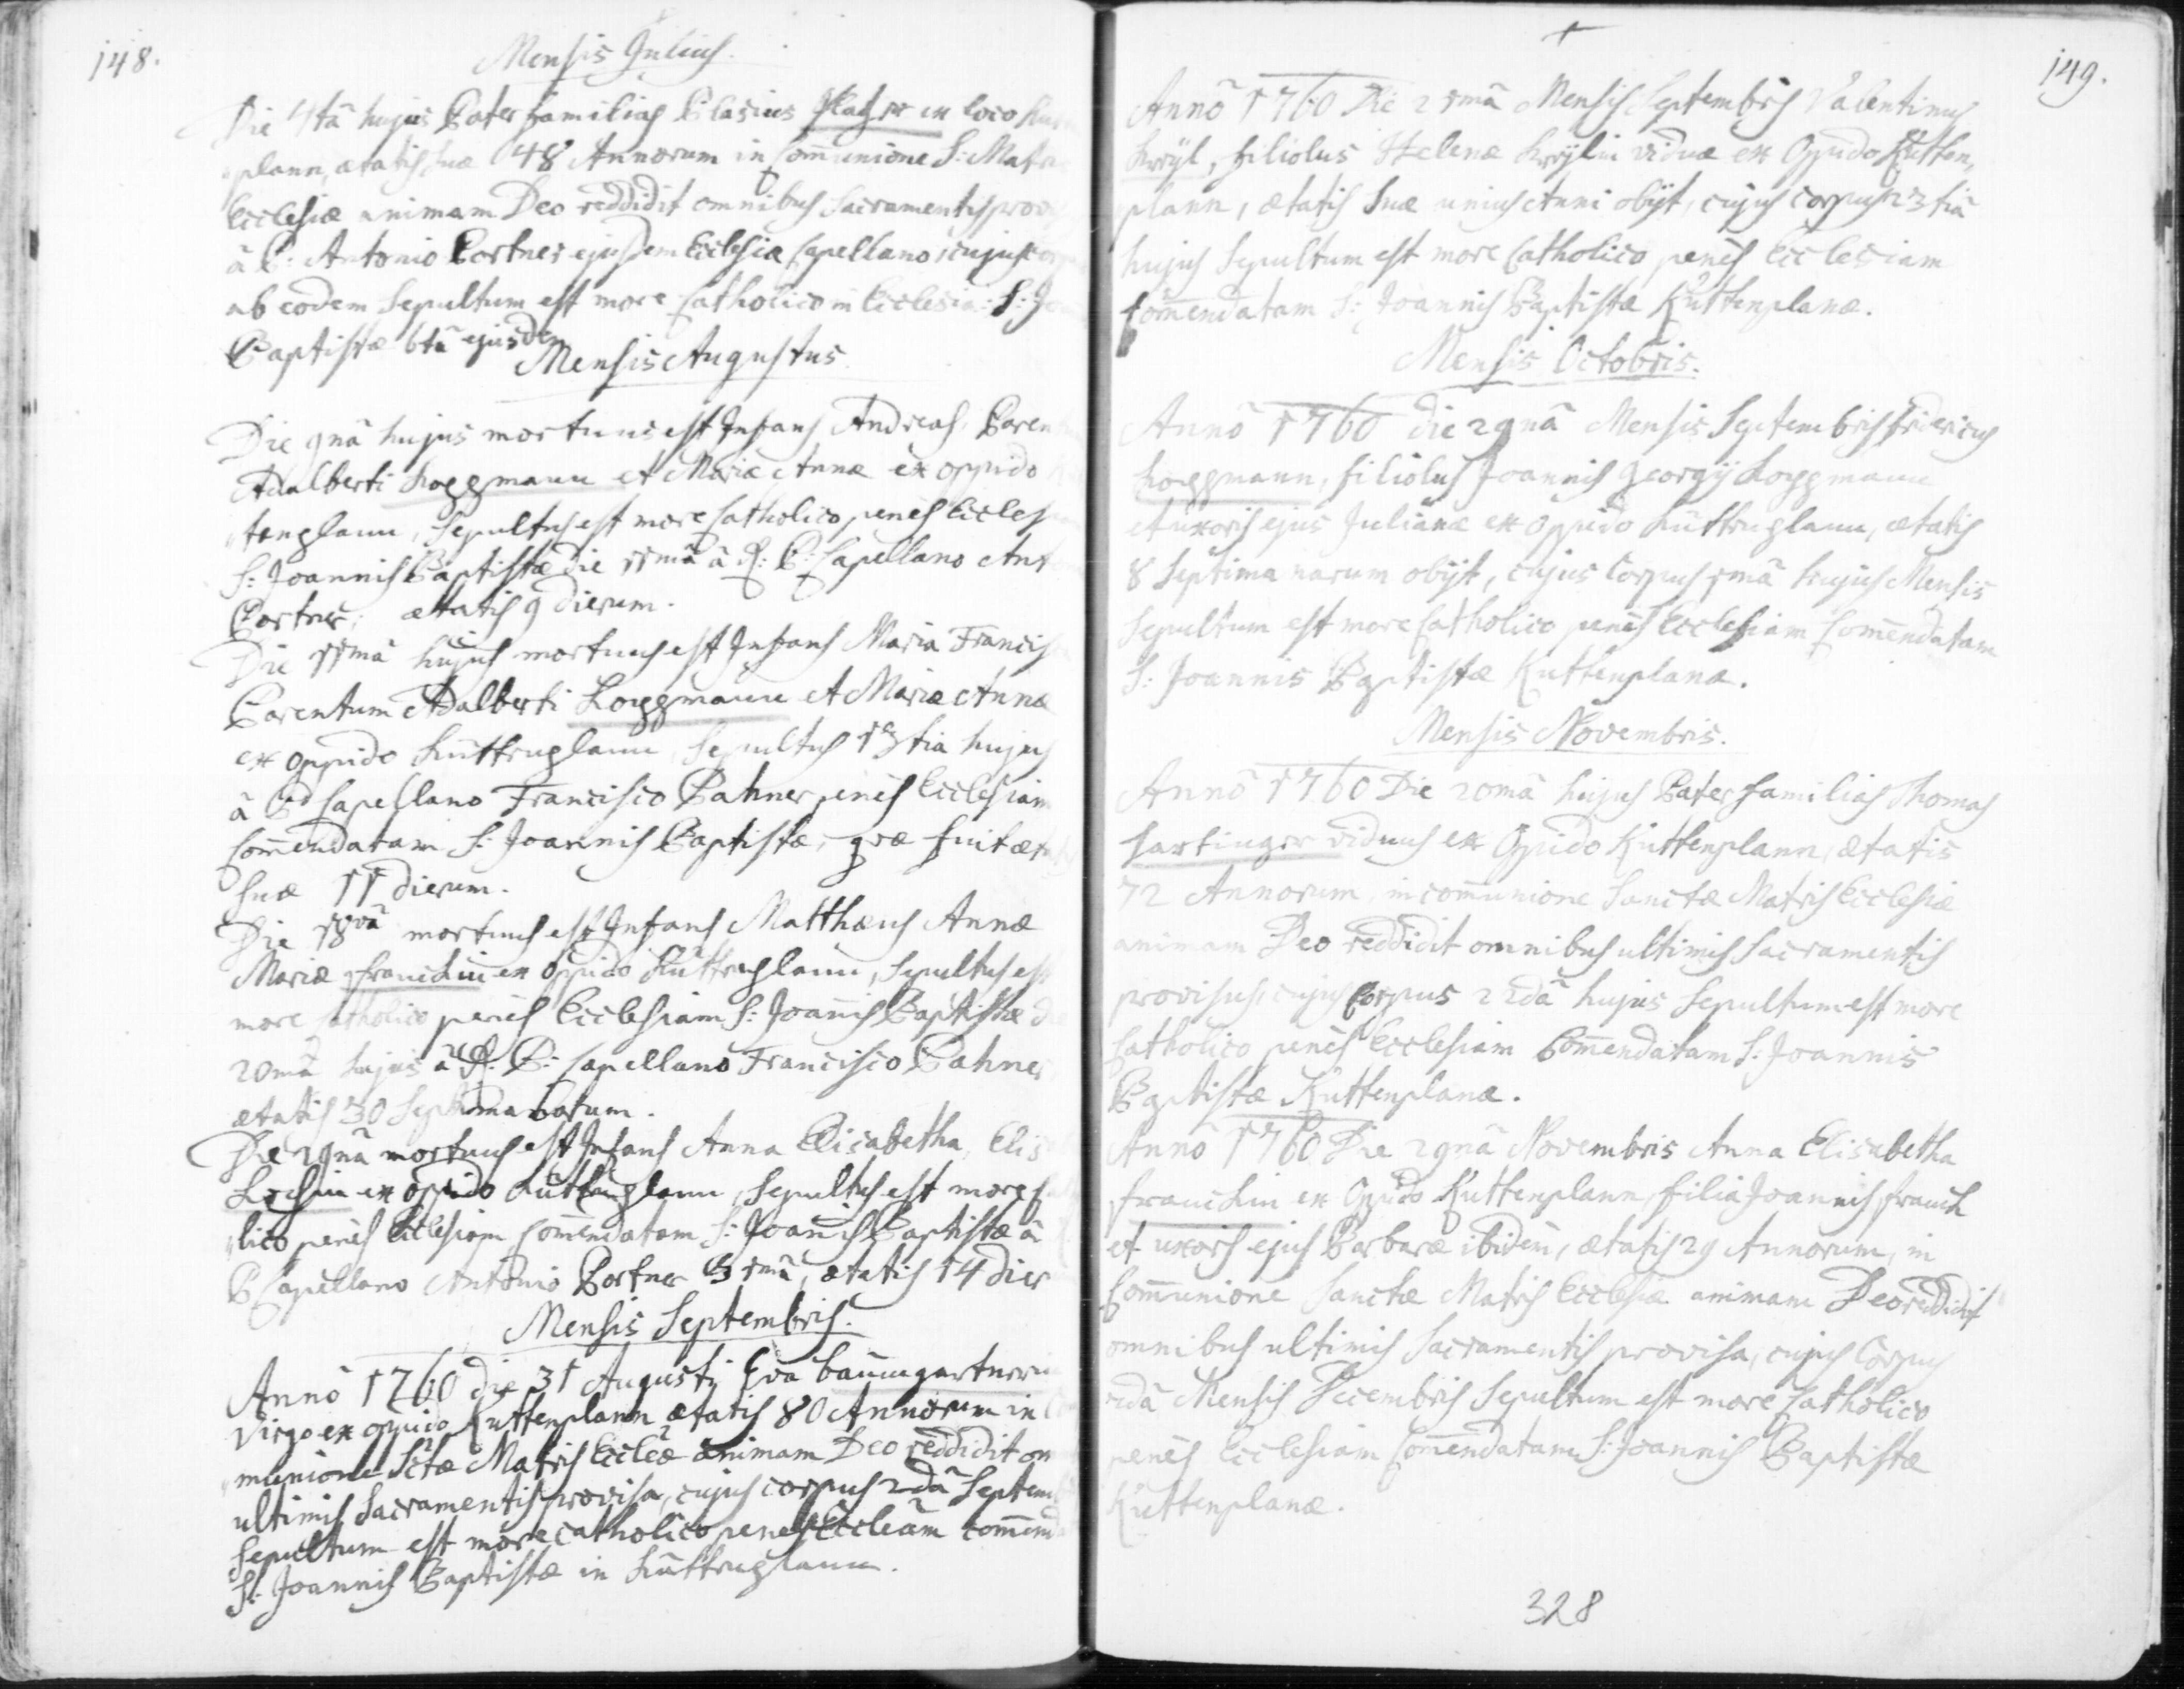 148.
Mensis Julius.
Die 4tâ hujus Pater familias Blasius in loco
plann, ætatis suæ 48 Annorum in Communione S: Matr
Ecclesiæ animam Deo reddidit omnibus Sacramentis prov
â P: Antonio Portner ejusdem Ecclesiæ Capellano, cujus cor
ab eodem Sepultum est more Catholico in Ecclesia: S: Jo
Baptistæ 6tâ ejusdem
Mensis Augustus.
Die 9nâ hujus mortuus est Infans Andreas, Paren
Adalberti Loggmann et Mariæ Annæ ex oppido
tenplann, Sepultus est more Catholico penes Eccles
S: Joannis Baptistæ die 11mâ â R: P: Capellano Ant
Portner, ætatis 9 dierum.
Die 11mâ hujus mortuus est Infans Maria Francis
Parentum Adalberti Loggmann et Mariæ Annæ
ex oppido Kuttenplann, Sepultus 13tia hujus
â Capellano Francisco Pahner penes Ecclesiam
Commendatam S: Joannis Baptistæ, quæ fuit æt
Suæ 11 dierum.
Die 18vâ mortuus est Infans Matthæus Annæ
Mariæ Franckin ex oppido Kuttenplann, Sepultus est
more Catholico penes Ecclesiam S: Joannis Baptistæ d
20mâ hujus â R: P: Capellano Francisco Pahner
ætatis 30 Septimanarum.
Die 29nâ mortuus est Infans Anna Elisabetha, Elis
ex oppido Kuttenplann, Sepultus est more
lico penes Ecclesiam Commendatam S: Joannis Baptistæ â
P Capellano Antonio Portner 31mâ, ætatis 14 dier
Mensis Septembris.
Annô 1760 die 31 Augusti Eva baumgartnerin
Virgo ex oppido Kuttenplann ætatis 80 Annorum in
munione Sctæ Matris Eccleæ animam Deo reddidit om
ultimis Sacramentis provisa, cujus corpus 2dâ Septem
Sepultum est more catholico penes Eccleâm commend
S: Joannis Baptistæ in Kuttenplann.
149.
Annô 1760 Die 21mâ Mensis Septembris Valentinus
filiolus Helenæ viduæ ex Oppido Kutten,
plann, ætatis Suæ unius Anni obijt, cujus corpus 23tiâ
hujus Sepultum est more Catholico penes Ecclesiam
Commendatam S: Joannis Baptistæ Kuttenplanæ.
Mensis Octobris.
Annô 1760 die 29nâ Mensis Septembris Fridericus
Loggmann, filiolus Joannis Georgij Loggmann
et uxoris ejus Julianæ ex oppido Kuttenplann, ætatis
8 Septimanarum obijt, cujus Corpus 1mâ hujus Mensis
Sepultum est more Catholico penes Ecclesiam Commendatam
S: Joannis Baptistæ Kuttenplanæ.
Mensis Novembris.
Annô 1760 Die 20mâ hujus Pater familias Thomas
Hartinger viduus ex Oppido Kuttenplann, ætatis
72 Annorum in communione Sanctæ Matris Ecclesiæ
animam Deo reddidit omnibus ultimis Sacramentis
provisus, cujus Corpus 22dâ hujus Sepultum est more
Catholico penes Ecclesiam Commendatam S: Joannis
Baptistæ Kuttenplanæ.
Annô 1760 Die 29nâ Novembris Anna Elisabetha
Franckin ex Oppido Kuttenplann, filia Joannis Franck
et uxoris ejus Barbaræ ibidem, ætatis 29 Annorum, in
Communione Sanctæ Matris Ecclesiæ animam Deo reddidit
omnibus ultimis Sacramentis provisa, cujus Corpus
2dâ Mensis Decembris Sepultum est more Catholico
penes Ecclesiam Commendatam S: Joannis Baptistæ
Kuttenplanæ.
328